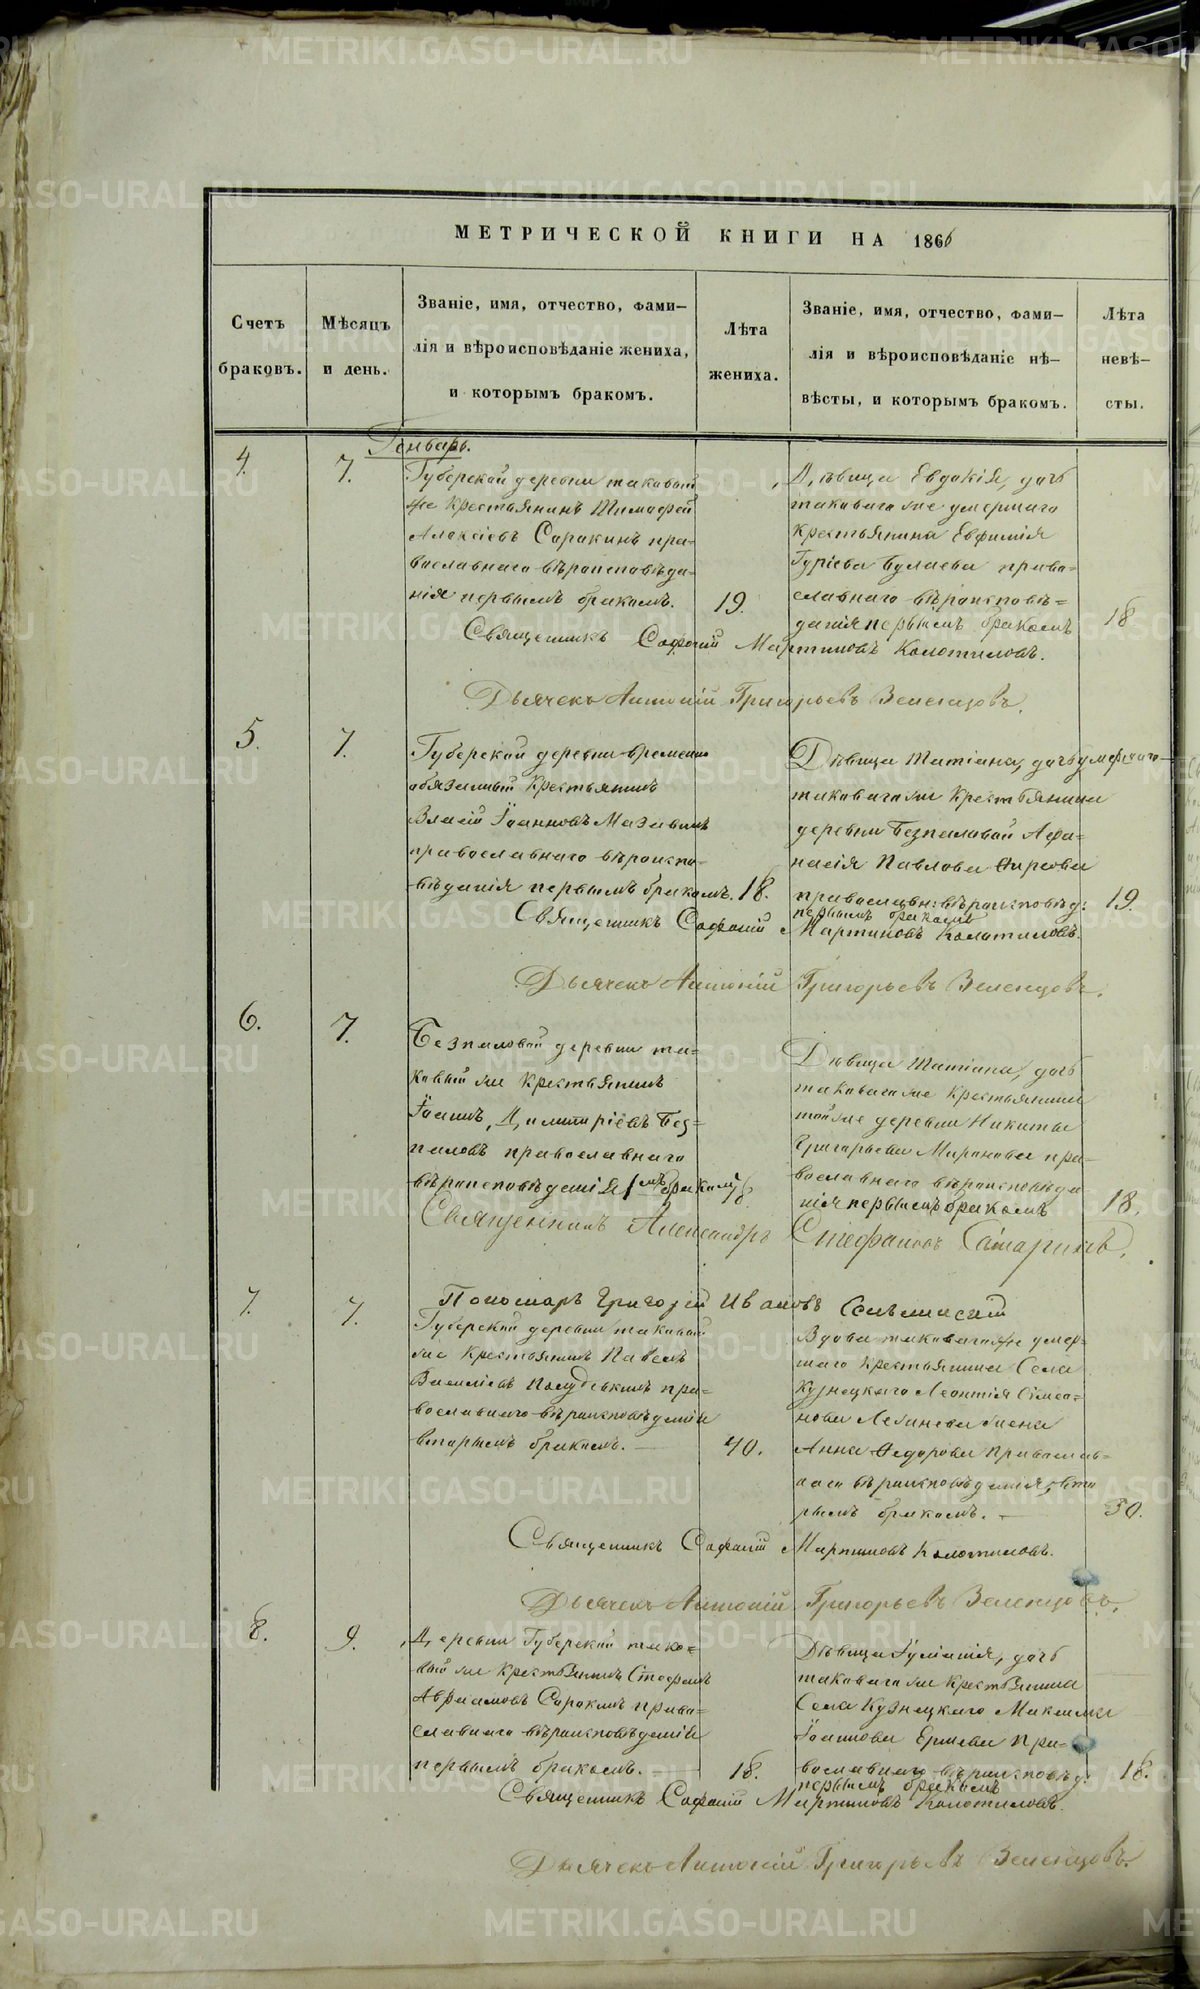 МЕТРИЧЕСКОЙ КНИГИ НА 1866
Счетъ
браковъ.
Мѣсяцъ
и день.
Званіе, имя, отчество, фами-
лія и вѣроисповѣданіе жениха,
и которымъ бракомъ.
Лѣта
жениха.
Званіе, имя, отчество, фами-
лія и вѣроисповѣданіе нѣ-
вѣсты, и которымъ бракомъ.
Лѣта
невѣ-
сты.
Генварь.
4.
7.
Губерской деревни таковый
же крестьянинъ Тимофей
Алексіевъ Сорокинъ пра-
вославнаго вѣроисповѣда-
нія первымъ бракомъ.
19.
Дѣвица Евдокія, дочь
таковаго же умершаго
крестьянина Евфимія
Гуріева Булаева право-
славнаго вѣроисповѣ-
данія первымъ бракомъ
18
Священникъ Софоній Мартиновъ Колотиловъ.
Дьячекъ Антоній Григорьевъ Зеленцовъ.
5.
7.
Губерской деревни временно
обязанный крестьянинъ
Власій Іоанновъ Мазавинъ
православнаго вѣроиспо-
вѣданія первымъ бракомъ.
18.
Дѣвица Татіана, дочь умершаго
таковаго же крестьянина
деревни Безпаловой Афа-
насія Павлова
православн: вѣроисповѣд:
первымъ бракомъ
19.
Священникъ Софоній Мартиновъ Колотиловъ.
Дьячекъ Антоній Григорьевъ Зеленцовъ.
6.
7.
Безпаловой деревни та-
ковый же крестьянинъ
Іоаннъ Димитріевъ Без-
паловъ православнаго
вѣроисповѣданія 1мъ бракомъ
18.
Дѣвица Татіана, дочь
таковаго же крестьянина
той же деревни Никиты
Григорьева Миронова пра-
вославнаго вѣроисповѣда
нія первымъ бракомъ
18.
Священникъ Александръ Стефановъ Сатариновъ.
Пономарь Григорій Ивановъ
7.
7.
Губерской деревни таковый
же крестьянинъ Павелъ
Василіевъ пра-
вославнаго вѣроисповѣданія
вторымъ бракомъ.
40.
Вдова таковаго же умер-
шаго крестьянина Села
Кузнецкаго Леонтія Симео-
нова жена
Анна Ѳедорова православ-
наго вѣроисповѣданія, вто
рымъ бракомъ.
30.
Священникъ Софоній Мартиновъ Колотиловъ.
Дьячекъ Антоній Григорьевъ Зеленцовъ.
8.
9.
Деревни Губерской тако-
вый же крестьянинъ Стефанъ
Авраамовъ Сорокинъ право-
славнаго вѣроисповѣданія
первымъ бракомъ.
18.
Дѣвица Іуліанія, дочь
таковаго же крестьянина
Села Кузнецкаго Максима
Іоаннова Ершева пра-
вославнаго вѣроисповѣд:
первымъ бракомъ
18.
Священникъ Софоній Мартиновъ Колотиловъ.
Дьячекъ Антоній Григорьевъ Зеленцовъ.
METRIKI.GASO-URAL.RU